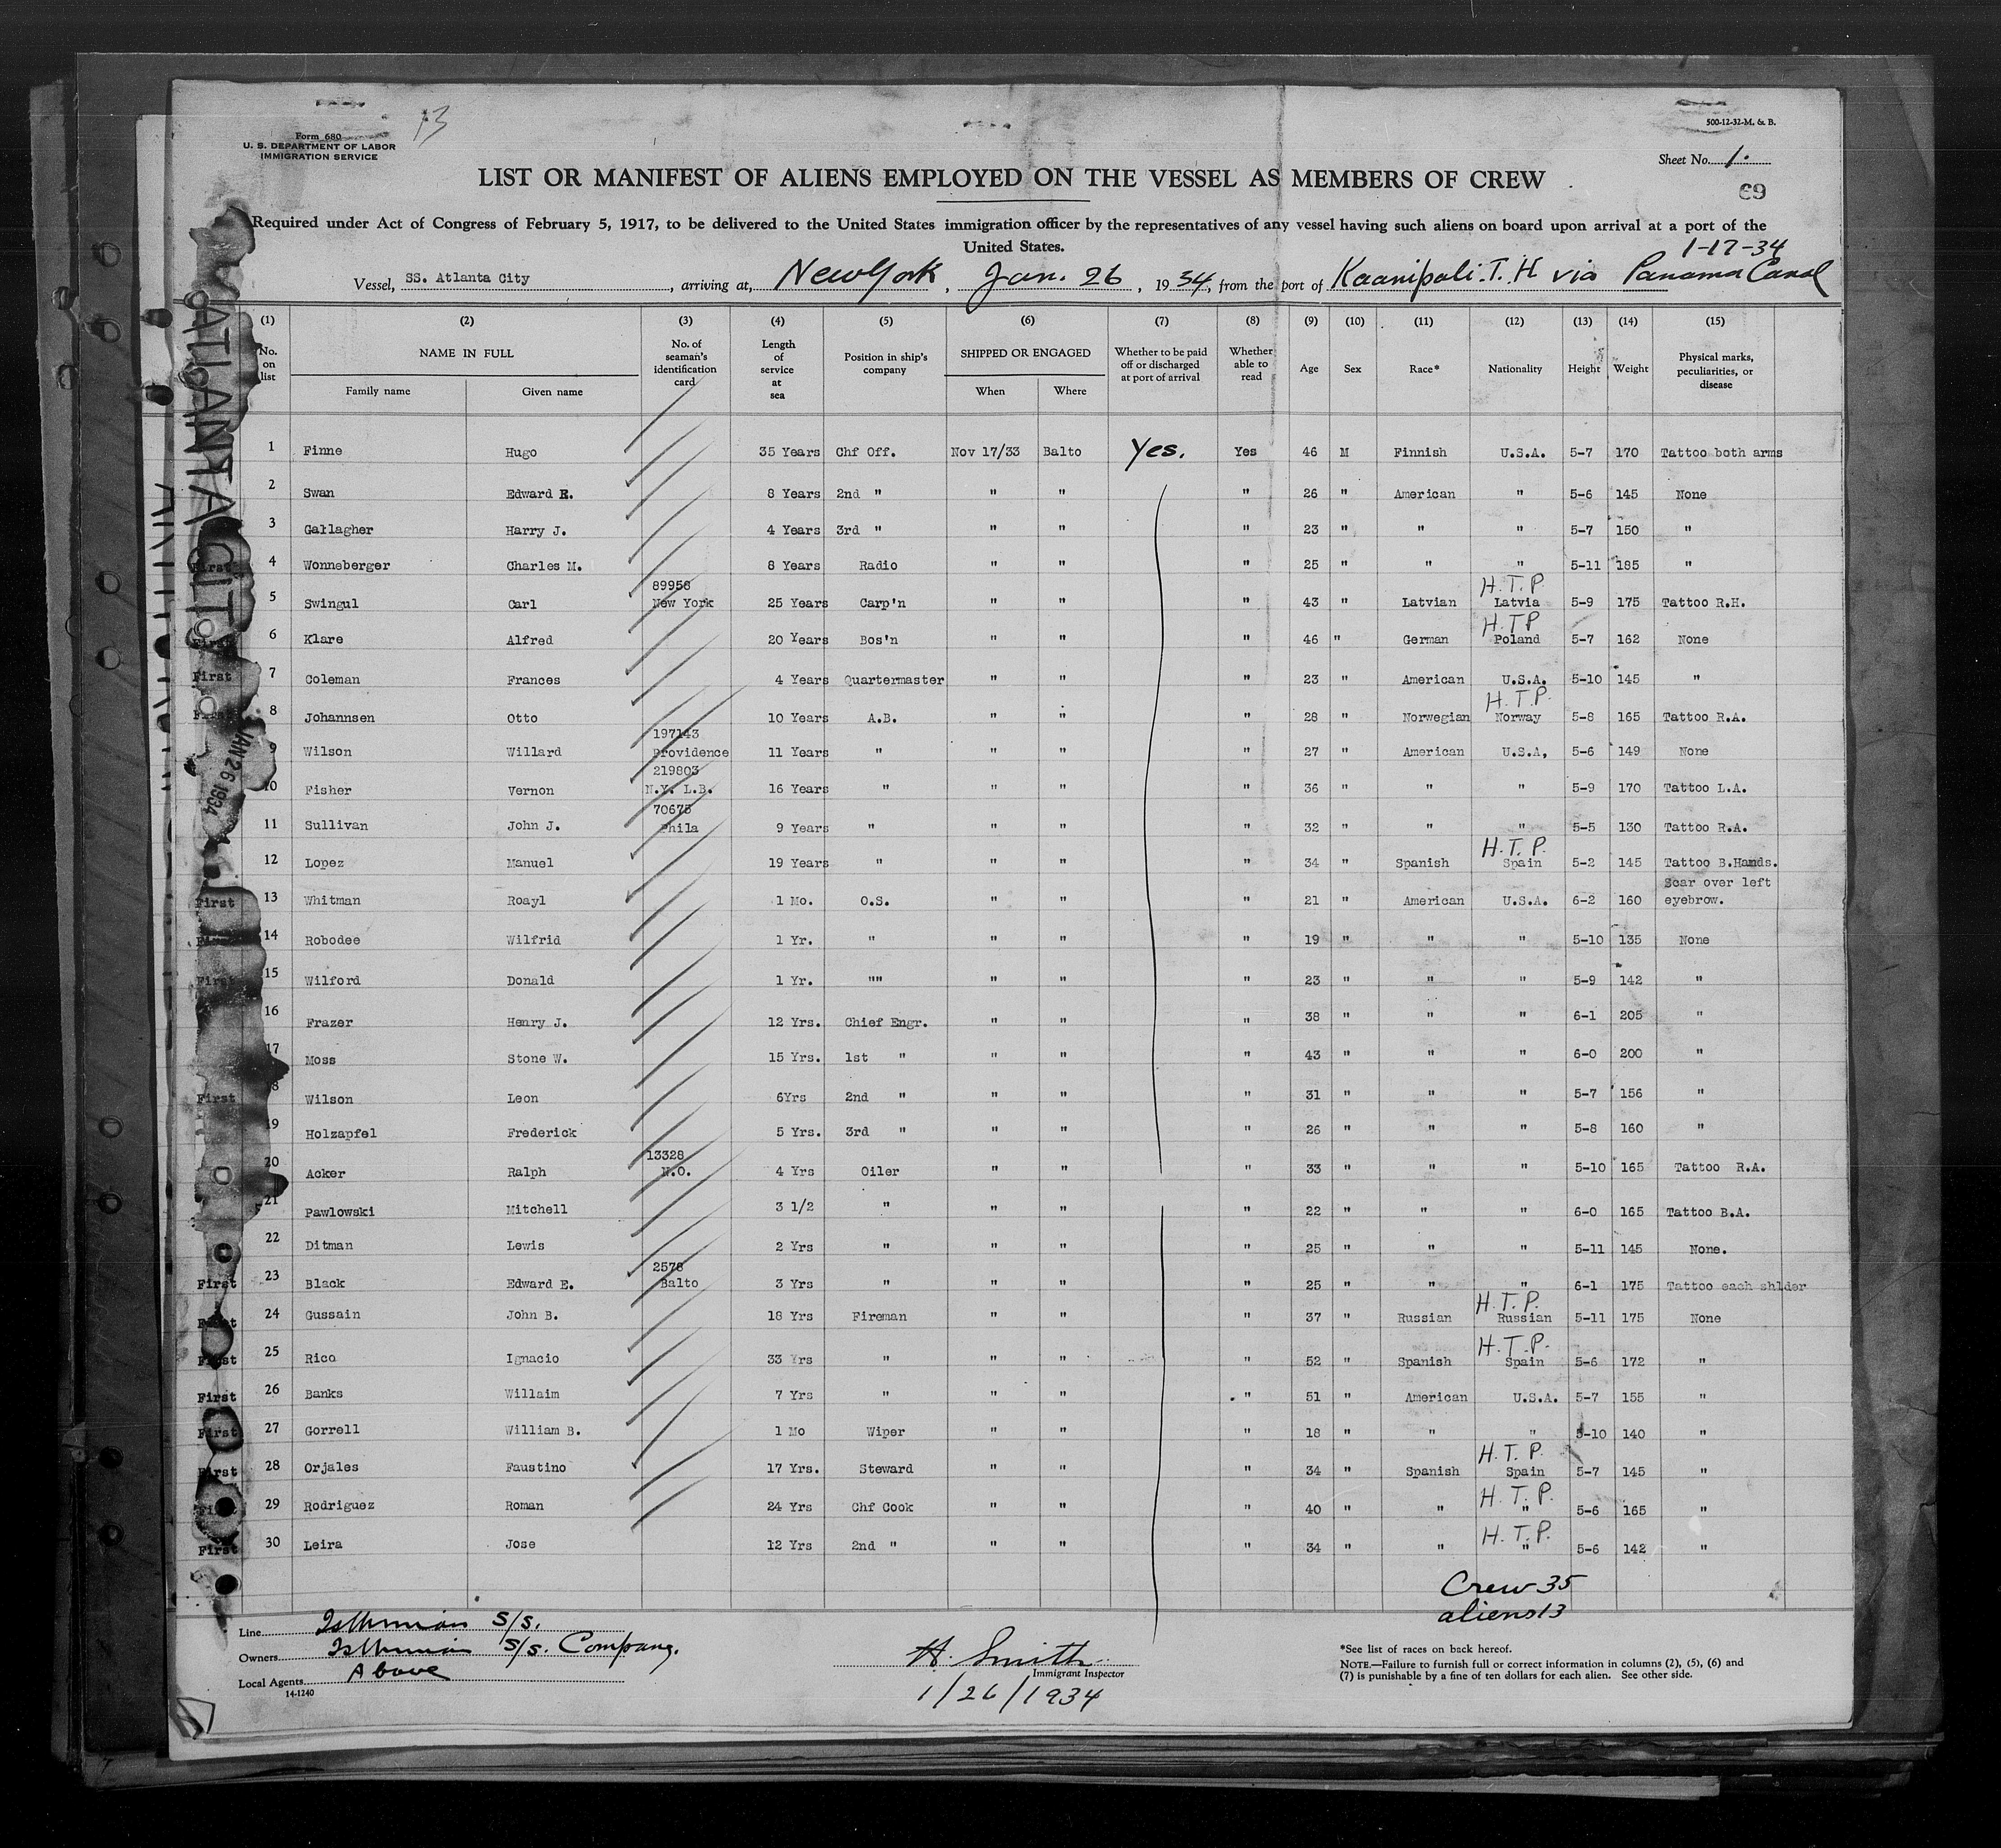 13
Form 680
U. S. DEPARTMENT OF LABOR
IMMIGRATION SERVICE
500-12-32-M. & B.
Sheet No. 1.
LIST OR MANIFEST OF ALIENS EMPLOYED ON THE VESSEL AS MEMBERS OF CREW
69
Required under Act of Congress of February 5, 1917, to be delivered to the United States immigration officer by the representatives of any vessel having such aliens on board upon arrival at a port of the
United States.
1-17-34
Vessel, SS. Atlanta City, arriving at, New York, Jan. 26, 1934, from the port of Kaanipali. T. H via Panama Canal
(1) (2) (3) (4) (5) (6) (7) (8) (9) (10) (11) (12) (13) (14) (15)
No. on list NAME IN FULL Family name Given name No. of seaman's identification card Length of service at sea Position in ship's company SHIPPED OR ENGAGED When Where Whether to be paid off or discharged at port of arrival Whether able to read Age Sex Race* Nationality Height Weight Physical marks, peculiarities, or disease
1 Finne Hugo 35 Years Chf Off. Nov 17/33 Balto Yes. Yes 46 M Finnish U.S.A. 5-7 170 Tattoo both arms
2 Swan Edward E. 8 Years 2nd " " " " 26 " American " 5-6 145 None
3 Gallagher Harry J. 4 Years 3rd " " " " 23 " " " 5-7 150 "
First 4 Wonneberger Charles M. 8 Years Radio " " " 25 " " " 5-11 185 "
5 Swingul Carl 89958 New York 25 Years Carp'n " " " 43 " Latvian H.T.P. Latvia 5-9 175 Tattoo R.H.
First 6 Klare Alfred 20 Years Bos'n " " " 46 " German H.T.P Poland 5-7 162 None
First 7 Coleman Frances 4 Years Quartermaster " " " 23 " American U.S.A. 5-10 145 "
First 8 Johannsen Otto 10 Years A.B. " " " 28 " Norwegian H.T.P. Norway 5-8 165 Tattoo R.A.
9 Wilson Willard 197143 Providence 11 Years " " " " 27 " American U.S.A, 5-6 149 None
10 Fisher Vernon 219803 N.Y. L.B. 16 Years " " " " 36 " " " 5-9 170 Tattoo L.A.
11 Sullivan John J. 70675 Phila 9 Years " " " " 32 " " " 5-5 130 Tattoo R.A.
12 Lopez Manuel 19 Years " " " " 34 " Spanish H.T.P. Spain 5-2 145 Tattoo B.Hands.
First 13 Whitman Roayl 1 Mo. O.S. " " " 21 " American U.S.A. 6-2 160 Scar over left eyebrow.
First 14 Robodee Wilfrid 1 Yr. " " " " 19 " " " 5-10 135 None
First 15 Wilford Donald 1 Yr. "" " " " 23 " " " 5-9 142 "
16 Frazer Henry J. 12 Yrs. Chief Engr. " " " 38 " " " 6-1 205 "
17 Moss Stone W. 15 Yrs. 1st " " " " 43 " " " 6-0 200 "
First 18 Wilson Leon 6Yrs 2nd " " " " 31 " " " 5-7 156 "
19 Holzapfel Frederick 5 Yrs. 3rd " " " " 26 " " " 5-8 160 "
20 Acker Ralph 13328 N.O. 4 Yrs Oiler " " " 33 " " " 5-10 165 Tattoo R.A.
21 Pawlowski Mitchell 3 1/2 " " " " 22 " " " 6-0 165 Tattoo B.A.
22 Ditman Lewis 2 Yrs " " " " 25 " " " 5-11 145 None.
First 23 Black Edward E. 2578 Balto 3 Yrs " " " " 25 " " " 6-1 175 Tattoo each shlder
First 24 Gussain John B. 18 Yrs Fireman " " " 37 " Russian H.T.P. Russian 5-11 175 None
First 25 Rico Ignacio 33 Yrs " " " " 52 " Spanish H.T.P. Spain 5-6 172 "
First 26 Banks Willaim 7 Yrs " " " " 51 " American U.S.A. 5-7 155 "
First 27 Gorrell William B. 1 Mo Wiper " " " 18 " " " 5-10 140 "
First 28 Orjales Faustino 17 Yrs. Steward " " " 34 " Spanish H.T.P. Spain 5-7 145 "
First 29 Rodriguez Roman 24 Yrs Chf Cook " " " 40 " " H.T.P. " 5-6 165 "
First 30 Leira Jose 12 Yrs 2nd " " " " 34 " " H.T.P. " 5-6 142 "
ATLANTA CITY
JAN 26 1934
Crew 35
aliens 13
Line Isthmian S/S.
Owners Isthmian S/S. Company.
Local Agents Above
14-1240
H. Smith
Immigrant Inspector
1/26/1934
*See list of races on back hereof.
NOTE.—Failure to furnish full or correct information in columns (2), (5), (6) and
(7) is punishable by a fine of ten dollars for each alien. See other side.